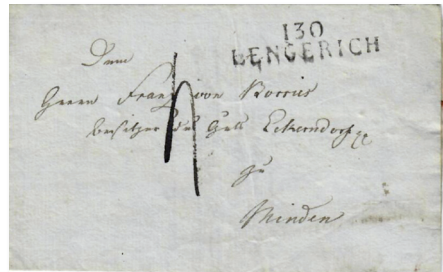 130
LENGERICH
Dem
Herrn Franz von Borries
Besitzer des Guts Eckendorf
zu
Minden